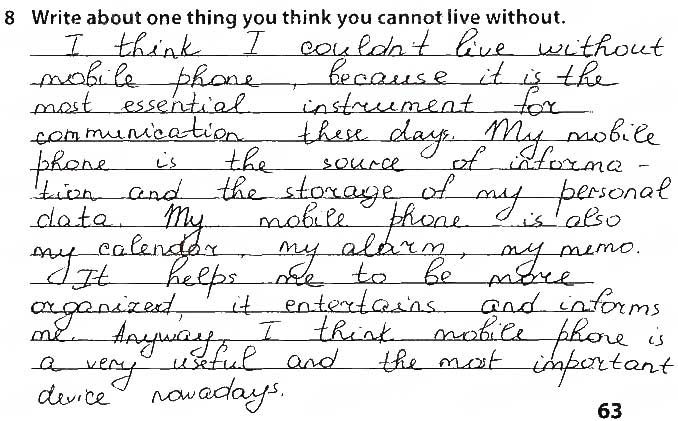 8 Write about one thing you think you cannot live without.
I think I couldn't live without
mobile phone, because it is the
most essential instrument for
communication these days. My mobile
phone is the source of informa-
tion and the storage of my personal
data. My mobile phone is also
my calendar, my alarm, my memo.
It helps me to be more
organized, it entertains and informs
me. Anyway, I think mobile phone is
a very useful and the most important
device nowadays.
63